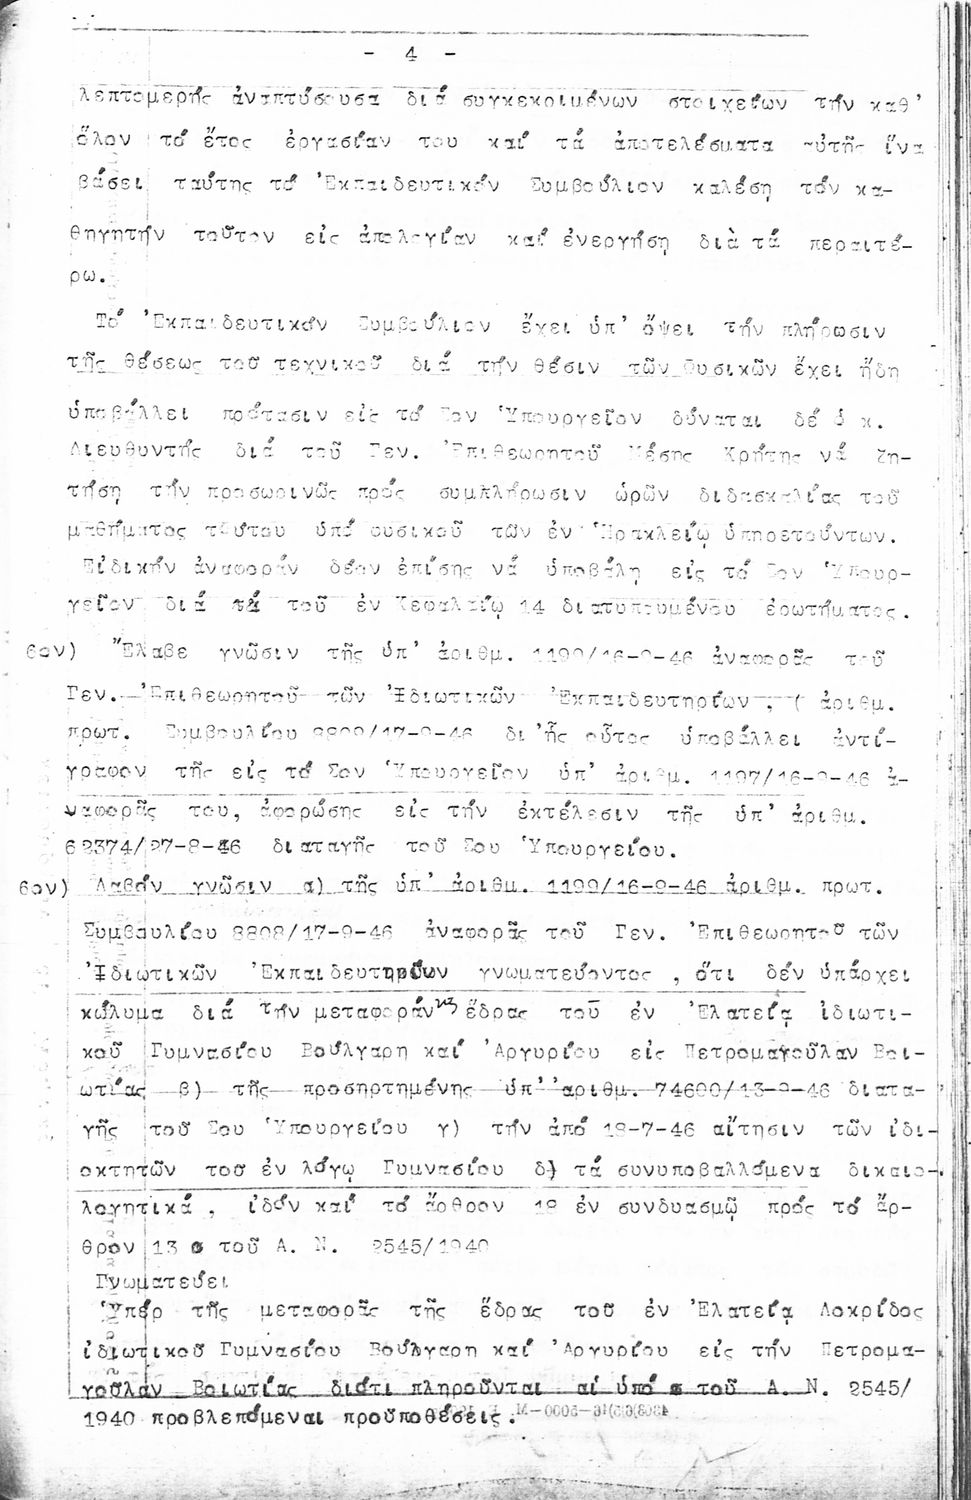 - 4 -
λεπτομερής ἀναπτύσουσα διά συγκεκριμένων στοιχείων τήν καθ'
ὅλον τό ἔτος ἐργασίαν του καί τά ἀποτελέσματα αὐτῆς ἵνα
βάσει ταύτης τό Ἐκπαιδευτικόν Συμβούλιον καλέσῃ τόν κα-
θηγητήν τοῦτον εἰς ἀπολογίαν καί ἐνεργήσῃ διὰ τά περαιτέ-
ρω.
Τό Ἐκπαιδευτικόν Συμβούλιον ἔχει ὑπ' ὄψει τήν πλήρωσιν
τῆς θέσεως τοῦ τεχνικοῦ διά τήν θέσιν τῶν Φυσικῶν ἔχει ἤδη
ὑποβάλλει πρότασιν εἰς τό Σον Ὑπουργεῖον δύναται δέ ὁ κ.
Διευθυντής διά τοῦ Γεν. Ἐπιθεωρητοῦ Μέσης Κρήτης νά ζη-
τήσῃ τήν προσωρινῶς πρός συμπλήρωσιν ὡρῶν διδασκαλίας τοῦ
μαθήματος τούτου ὑπό φυσικοῦ τῶν ἐν Ἡρακλείῳ ὑπηρετούντων.
Εἰδικήν ἀναφοράν δέον ἐπίσης νά ὑποβάλῃ εἰς τό Σον Ὑπουρ-
γεῖον διά τά τοῦ ἐν Κεφαλαίῳ 14 διατυπουμένου ἐρωτήματος.
6ον) Ἔλαβε γνῶσιν τῆς ὑπ' ἀριθμ. 1199/16-9-46 ἀναφορᾶς τοῦ
Γεν. Ἐπιθεωρητοῦ τῶν Ἰδιωτικῶν Ἐκπαιδευτηρίων , ( ἀριθμ.
πρωτ. Συμβουλίου 8809/17-9-46 δι'ἧς οὗτος ὑποβάλλει ἀντί-
γραφον τῆς εἰς τό Σον Ὑπουργεῖον ὑπ' ἀριθμ. 1197/16-9-46 ἀ-
ναφορᾶς του, ἀφορώσης εἰς τήν ἐκτέλεσιν τῆς ὑπ' ἀριθμ.
62374/27-8-46 διαταγῆς τοῦ Σου Ὑπουργείου.
6ον) Λαβόν γνῶσιν α) τῆς ὑπ' ἀριθμ. 1199/16-9-46 ἀριθμ. πρωτ.
Συμβουλίου 8808/17-9-46 ἀναφορᾶς τοῦ Γεν. Ἐπιθεωρητοῦ τῶν
Ἰδιωτικῶν Ἐκπαιδευτηρίων γνωματεύοντος , ὅτι δέν ὑπάρχει
κώλυμα διά τήν μεταφοράν ἕδρας τοῦ ἐν Ἐλατείᾳ ἰδιωτι-
κοῦ Γυμνασίου Βούλγαρη καί Ἀργυρίου εἰς Πετρομαγοῦλαν Βοι-
ωτίας β) τῆς προσηρτημένης ὑπ' ἀριθμ. 74690/13-9-46 διατα-
γῆς τοῦ Σου Ὑπουργείου γ) τήν ἀπό 18-7-46 αἴτησιν τῶν ἰδι-
οκτητῶν του ἐν λόγῳ Γυμνασίου δ) τά συνυποβαλλόμενα δικαιο-
λογητικά , ἰδόν καί τό ἄρθρον 18 ἐν συνδυασμῷ πρός τό ἄρ-
θρον 13 τοῦ Α. Ν. 2545/1940
Γνωματεύει
Ὑπέρ τῆς μεταφορᾶς τῆς ἕδρας τοῦ ἐν Ἐλατείᾳ Λοκρίδος
ἰδιωτικοῦ Γυμνασίου Βούλγαρη καί Ἀργυρίου εἰς τήν Πετρομα-
γοῦλαν Βοιωτίας διότι πληροῦνται αἱ ὑπό τοῦ Α. Ν. 2545/
1940 προβλεπόμεναι προϋποθέσεις.